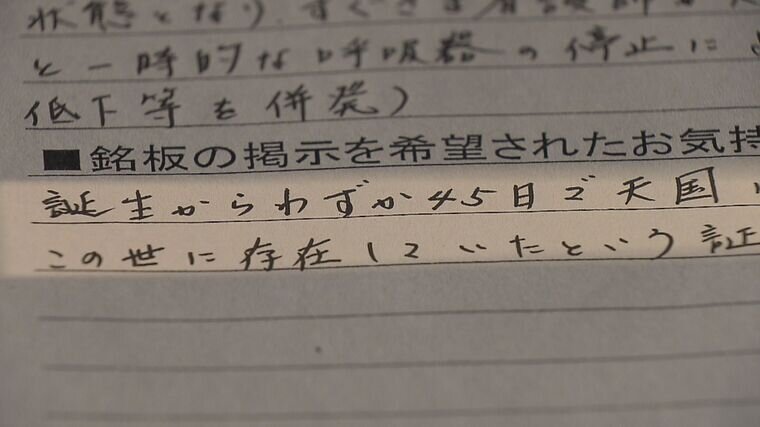 状態となり、すぐさま看護師
と一時的な呼吸器の停止に
低下等を併発）
■銘板の掲示を希望されたお気持
誕生からわずか45日で天国
この世に存在していたという証